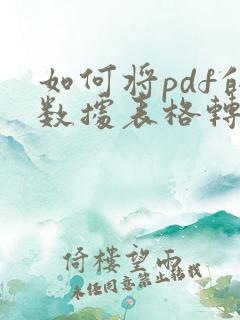 如何将pdf的
数據表格轉
倚樓望雨
未经同意禁止转载